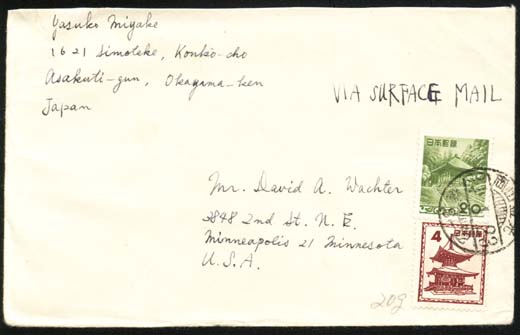 Yasuko Miyake
1621 Simoteke, Konko-cho
Asakuti-gun, Okayama-ken
Japan
VIA SURFACE MAIL
日本郵便
Mr. David A. Wachter
2848 2nd St. N.E.
Minneapolis 21 Minnesota
U.S.A.
4
日本郵便
20g